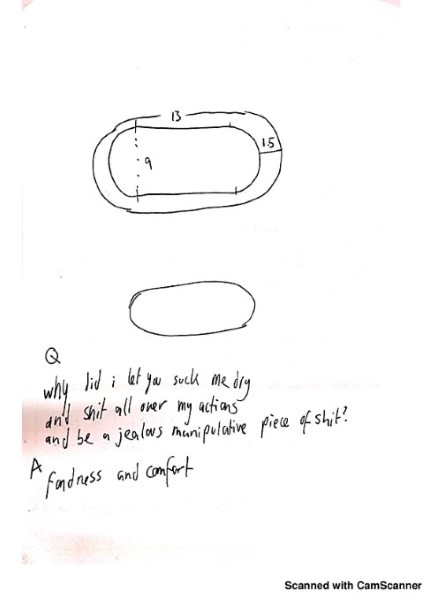 13
15
9
Q
why did i let you suck me dry
and shit all over my actions
and be a jealous manipulative piece of shit?
A
fondness and comfort
Scanned with CamScanner